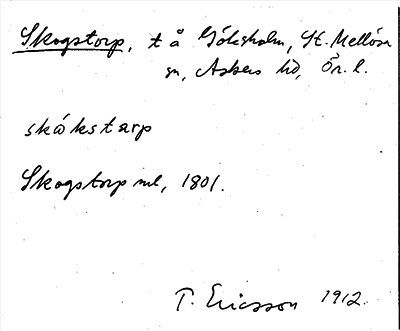 Skogstorp, t å Göksholm, St. Mellösa
sn, Askers hd, Ör. l.
skåkstarp
Skogstorp ml, 1801.
T. Ericsson 1912.